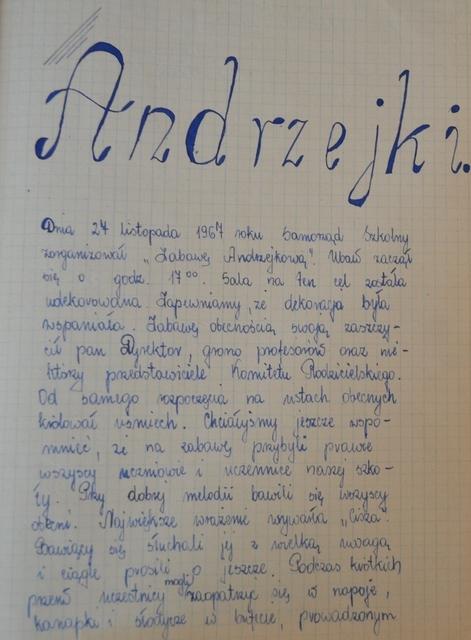 Andrzejki.
Dnia 24 listopada 1967 roku Samorząd Szkolny
zorganizował „Zabawę Andrzejkową". Ubaw zaczął
się o godz. 17⁰⁰. Sala na ten cel została
udekorowana. Zapewniamy, że dekoracja była
wspaniała. Zabawę obecnością swoją zaszczy-
cił pan Dyrektor, grono profesorów oraz nie-
którzy przedstawiciele Komitetu Rodzicielskiego.
Od samego rozpoczęcia na ustach obecnych
królował uśmiech. Chciałyśmy jeszcze wspo-
mnieć, że na zabawę przybyli prawie
wszyscy uczniowie i uczennice naszej szko-
ły. Przy dobrej melodii bawili się wszyscy
obecni. Największe wrażenie wywarła „Cisza".
Bawiący się słuchali jej z wielką uwagą
i ciągle prosili o jeszcze. Podczas krótkich
przerw uczestnicy mogli zaopatrzyć się w napoje,
kanapki i słodycze w bufecie, prowadzonym